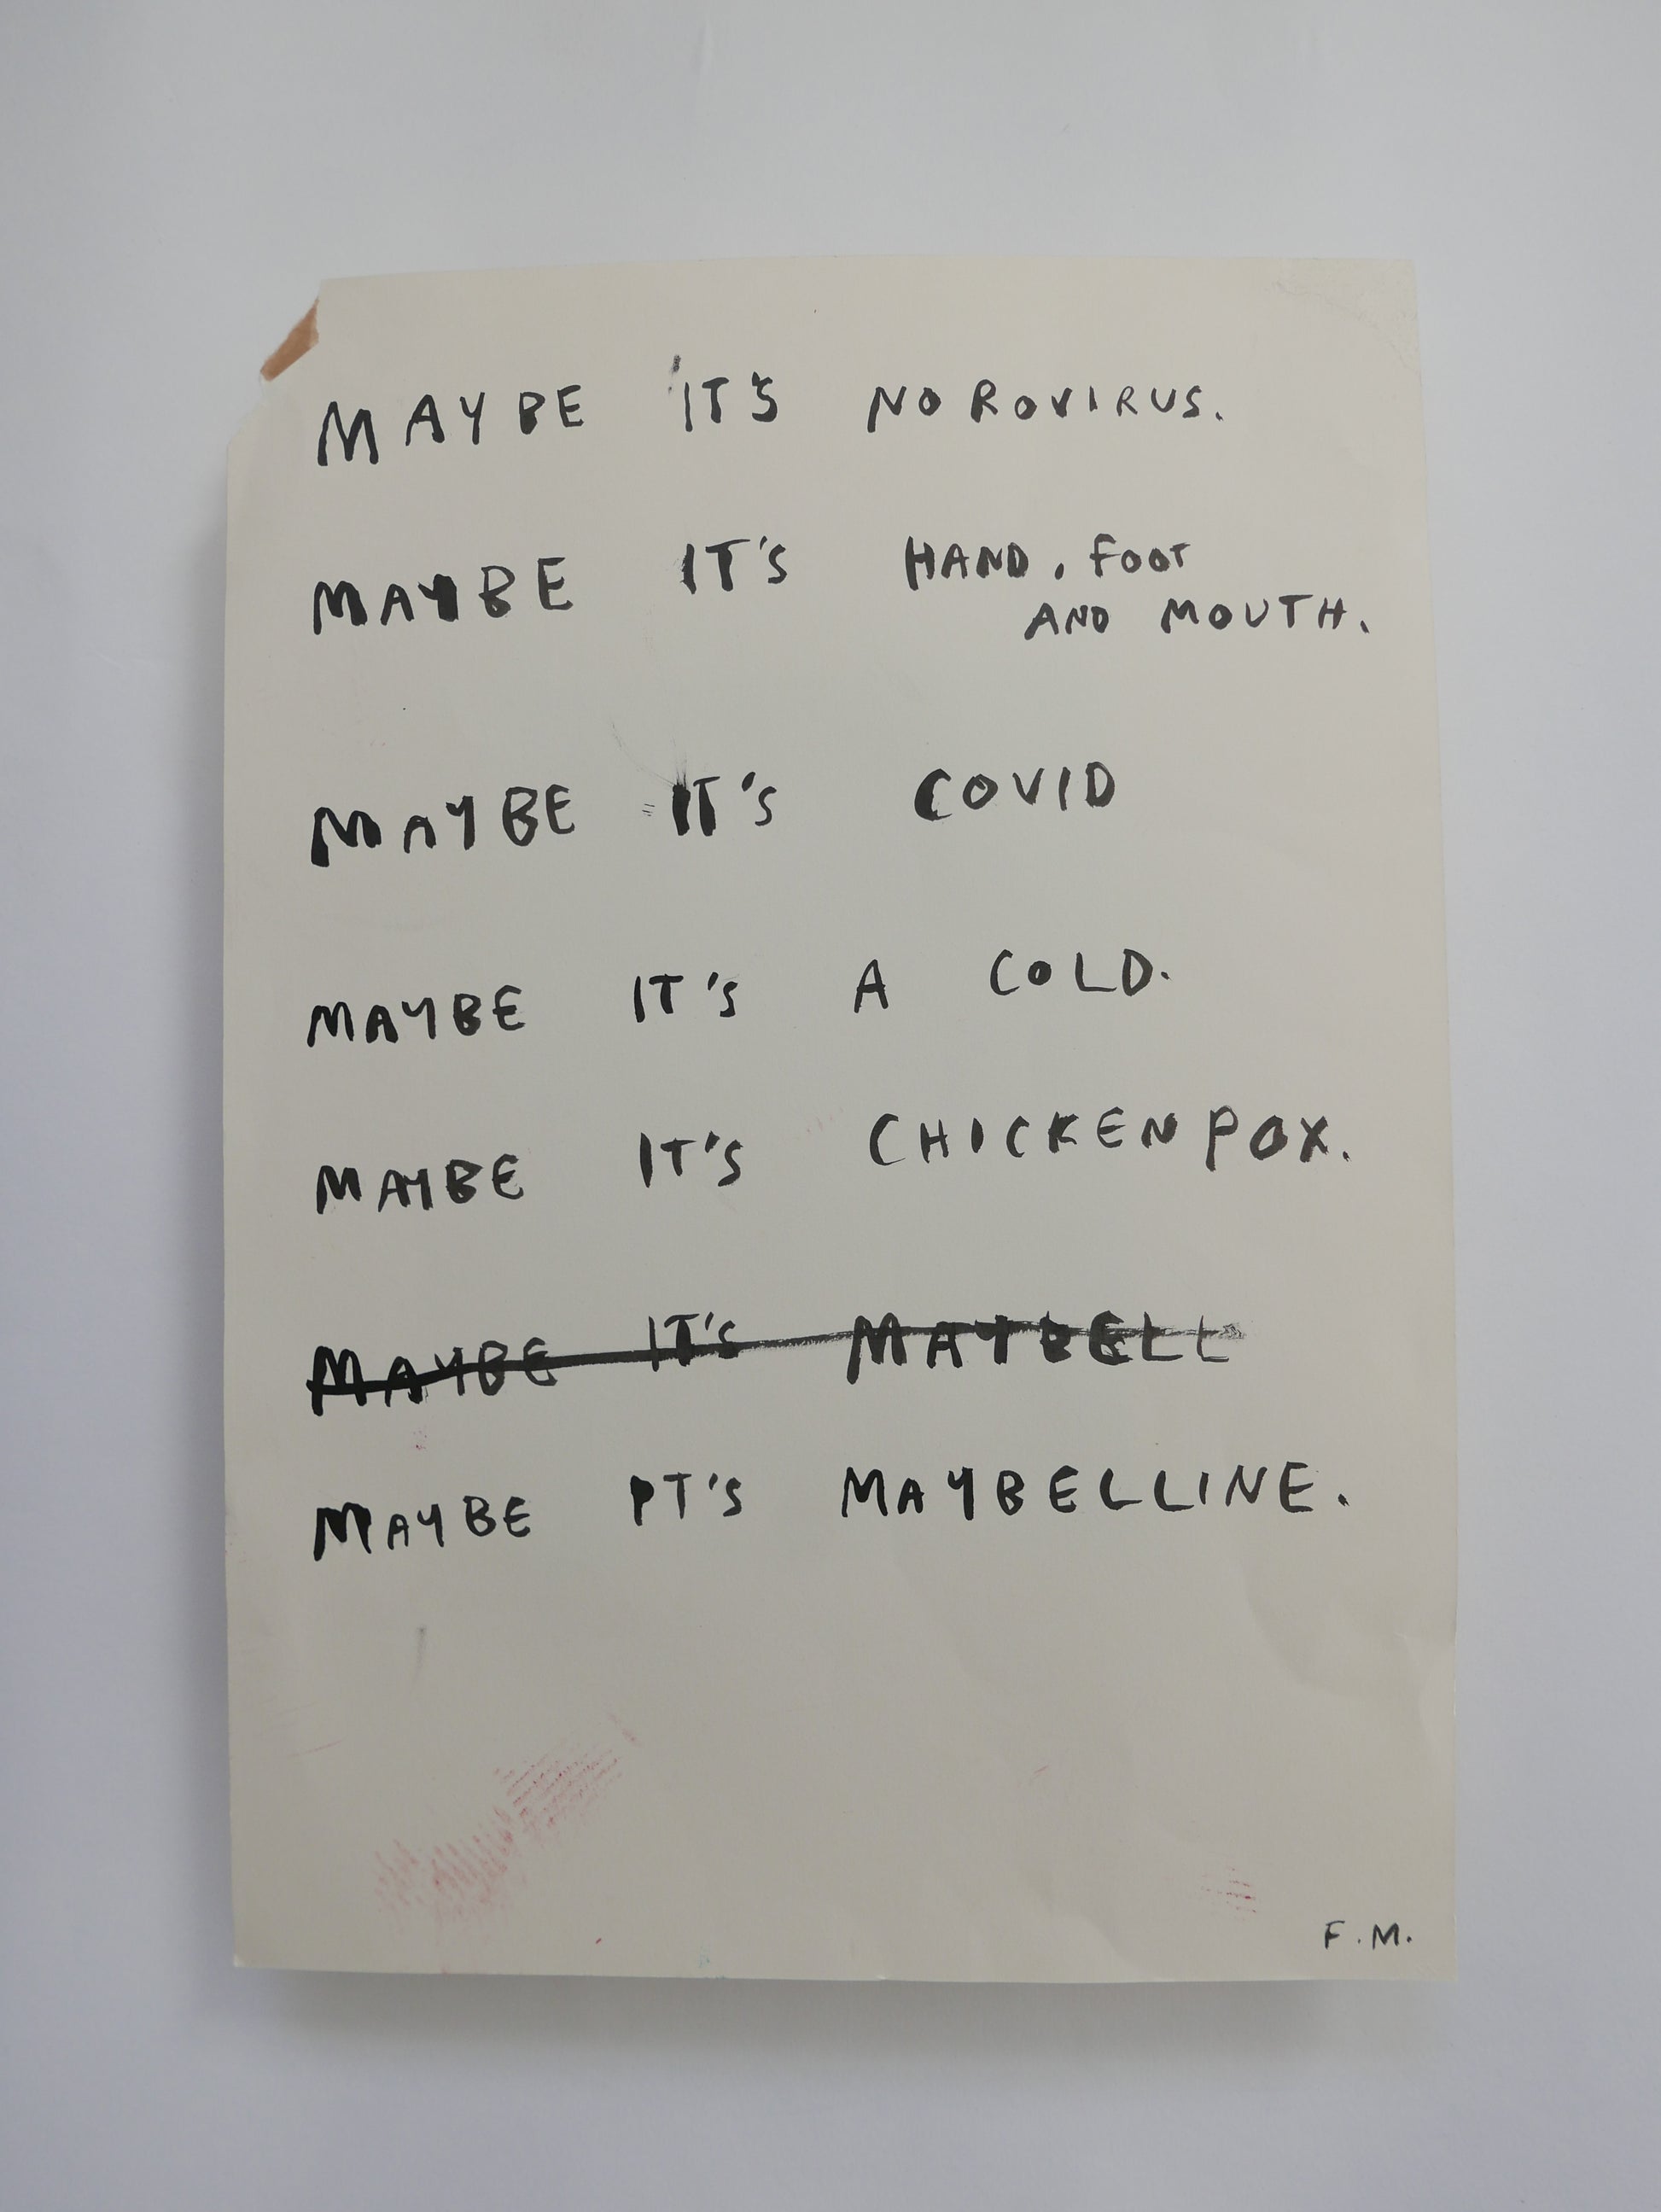 MAYBE IT'S NOROVIRUS.
MAYBE IT'S HAND, FOOT
AND MOUTH.
MAYBE IT'S COVID
MAYBE IT'S A COLD.
MAYBE IT'S CHICKENPOX.
MAYBE IT'S MAYBELL
MAYBE IT'S MAYBELLINE.
F.M.